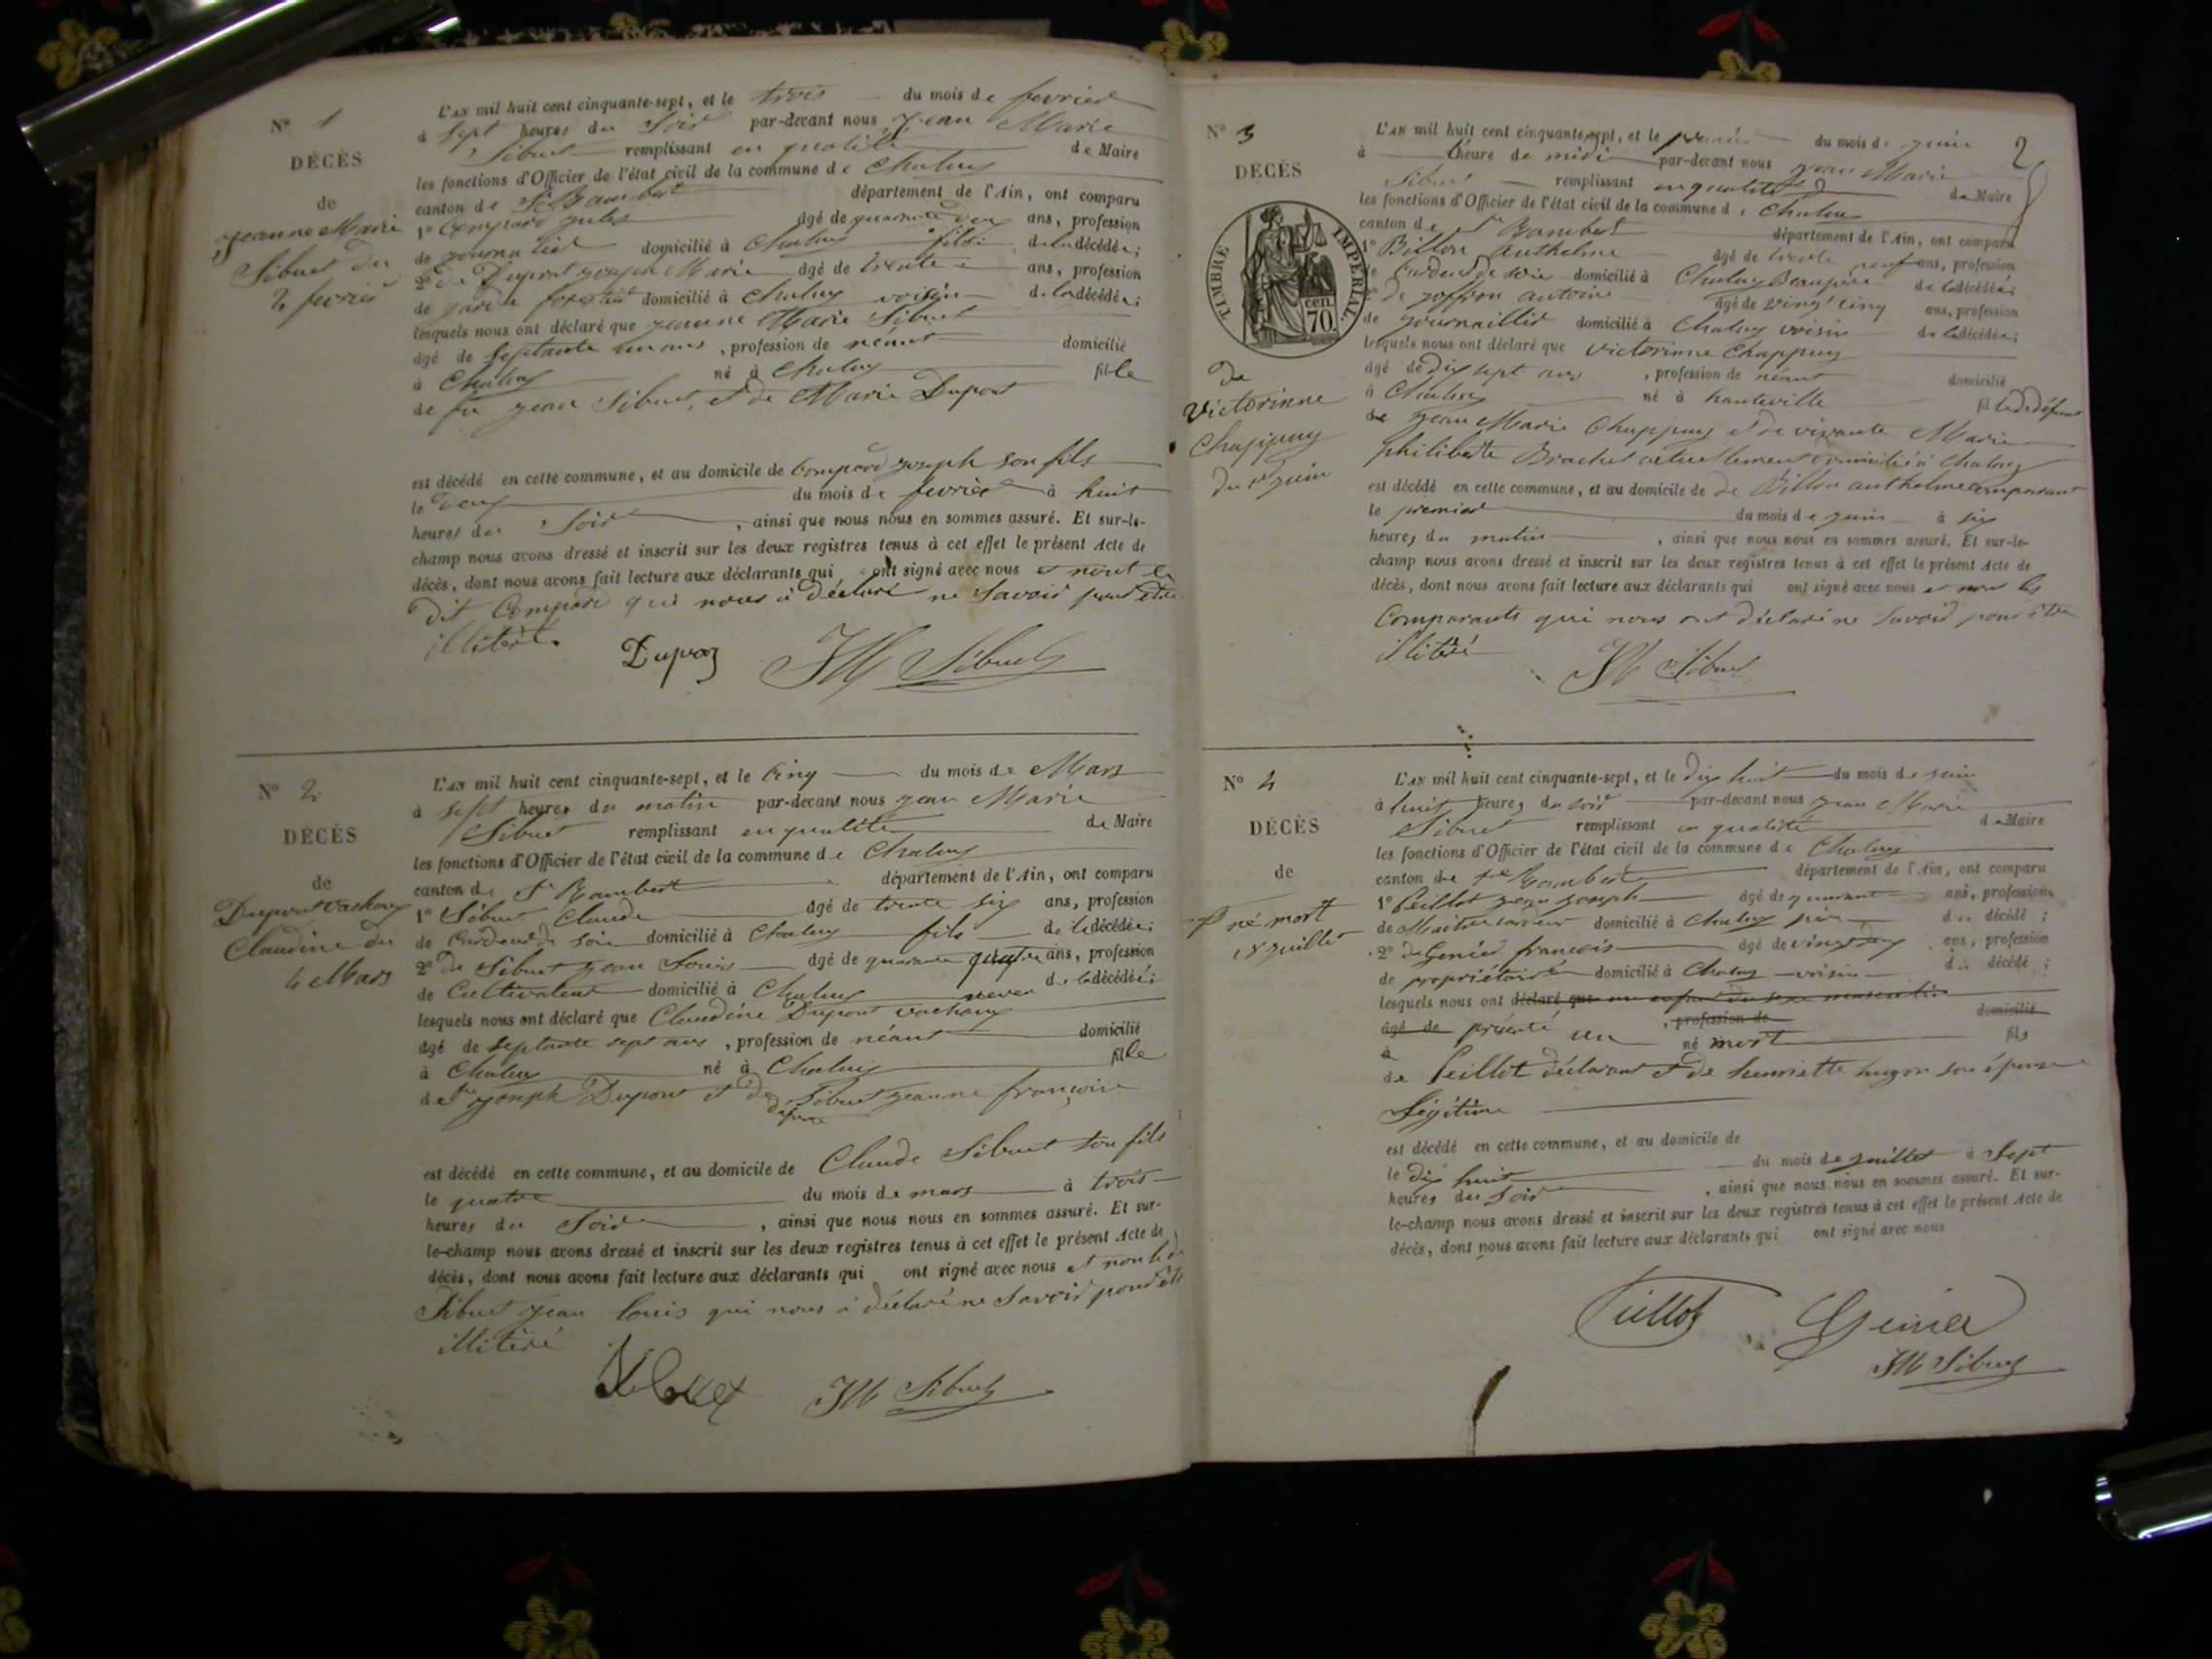 N° 1
DÉCÈS
de
Jeanne Marie
Sibuet du
2 fevrier
L'AN mil huit cent cinquante-sept, et le trois du mois de fevrier
à sept heures du Soir par-devant nous Jean Marie
Sibuet remplissant en qualité de Maire
les fonctions d'Officier de l'état civil de la commune de Chaley
canton de St Rambert département de l'Ain, ont comparu
1° Compard Jules âgé de quarante deux ans, profession
de journalier domicilié à Chaley fils de la décédée;
2° de Dupont Joseph Marie âgé de trente ans, profession
de garde forestier domicilié à Chaley voisin de la décédée;
lesquels nous ont déclaré que Jeanne Marie Sibuet
âgé de septante un ans, profession de néant domicilié
à Chaley né à Chaley fille
de feu Jean Sibuet, et de Marie Dupont
est décédé en cette commune, et au domicile de Compard Joseph son fils
le deux du mois de fevrier à huit
heures du Soir, ainsi que nous nous en sommes assuré. Et sur-le-
champ nous avons dressé et inscrit sur les deux registres tenus à cet effet le présent Acte de
décès, dont nous avons fait lecture aux déclarants qui ont signé avec nous et non le
dit Compard qui nous a déclaré ne Savoir pour être
illitéré.
JM Sibuet
N° 2
DÉCÈS
de
Dupont Vachoux
Claudine du
4 Mars
L'AN mil huit cent cinquante-sept, et le cinq du mois de Mars
à sept heures du matin par-devant nous Jean Marie
Sibuet remplissant en qualité de Maire
les fonctions d'Officier de l'état civil de la commune de Chaley
canton de St Rambert département de l'Ain, ont comparu
1° Sibuet Claude âgé de trente six ans, profession
de Cardeur de soie domicilié à Chaley fils de la décédée;
2° de Sibuet Jean Louis âgé de quarante quatre ans, profession
de Cultivateur domicilié à Chaley neveu de la décédée;
lesquels nous ont déclaré que Claudine Dupont Vachoux
âgé de septante sept ans, profession de néant domicilié
à Chaley né à Chaley fille
de feu Joseph Dupont et de Sibuet Jeanne françoise
est décédé en cette commune, et au domicile de Claude Sibuet son fils
le quatre du mois de mars à trois
heures du Soir, ainsi que nous nous en sommes assuré. Et sur-
le-champ nous avons dressé et inscrit sur les deux registres tenus à cet effet le présent Acte de
décès, dont nous avons fait lecture aux déclarants qui ont signé avec nous et non le dit
Sibuet Jean Louis qui nous a déclaré ne Savoir pour être
illitéré
JM Sibuet
2
N° 3
DÉCÈS
TIMBRE IMPÉRIAL
70 cen.
de
Victorinne
Chappuy
du 1er juin
L'AN mil huit cent cinquante-sept, et le premier du mois de juin
à l'heure de midi par-devant nous Jean Marie
Sibuet remplissant en qualité de Maire
les fonctions d'Officier de l'état civil de la commune de Chaley
canton de St Rambert département de l'Ain, ont comparu
1° Billon Anthelme âgé de trente neuf ans, profession
de Cardeur de soie domicilié à Chaley Beaupère de la décédée;
2° de Joffron antoine âgé de vingt cinq ans, profession
de journaillier domicilié à Chaley voisin de la décédée;
lesquels nous ont déclaré que Victorinne Chappuy
âgé de dix sept ans, profession de néant domicilié
à Chaley né à hauteville fille de défunt
de Jean Marie Chappuy et de vivante Marie
philiberte Brachet actuellement domicilié à Chaley
est décédé en cette commune, et au domicile de de Billon anthelme comparant
le premier du mois de juin à six
heures du matin, ainsi que nous nous en sommes assuré. Et sur-le-
champ nous avons dressé et inscrit sur les deux registres tenus à cet effet le présent Acte de
décès, dont nous avons fait lecture aux déclarants qui ont signé avec nous et non les
Comparants qui nous ont déclaré ne Savoir pour être
illitéré
JM Sibuet
N° 4
DÉCÈS
de
né mort
18 juillet
L'AN mil huit cent cinquante-sept, et le dix huit du mois de juin
à huit heures du soir par-devant nous Jean Marie
Sibuet remplissant en qualité de Maire
les fonctions d'Officier de l'état civil de la commune de Chaley
canton de St Rambert département de l'Ain, ont comparu
1° Peillot Jean Joseph âgé de quarante ans, profession
de Maitre cardeur domicilié à Chaley père d décédé;
2° de Genier francois âgé de vingt deux ans, profession
de propriétaire domicilié à Chaley voisin d décédé;
lesquels nous ont déclaré que un enfant du sexe masculin
âgé de présenté un, profession de domicilié
à né mort fils
de Peillot déclarant et de henriette hugon son épouse
Légitime
est décédé en cette commune, et au domicile de
le dix huit du mois de juillet à Sept
heures du Soir, ainsi que nous nous en sommes assuré. Et sur-
le-champ nous avons dressé et inscrit sur les deux registres tenus à cet effet le présent Acte de
décès, dont nous avons fait lecture aux déclarants qui ont signé avec nous
Peillot Genier
JM Sibuet